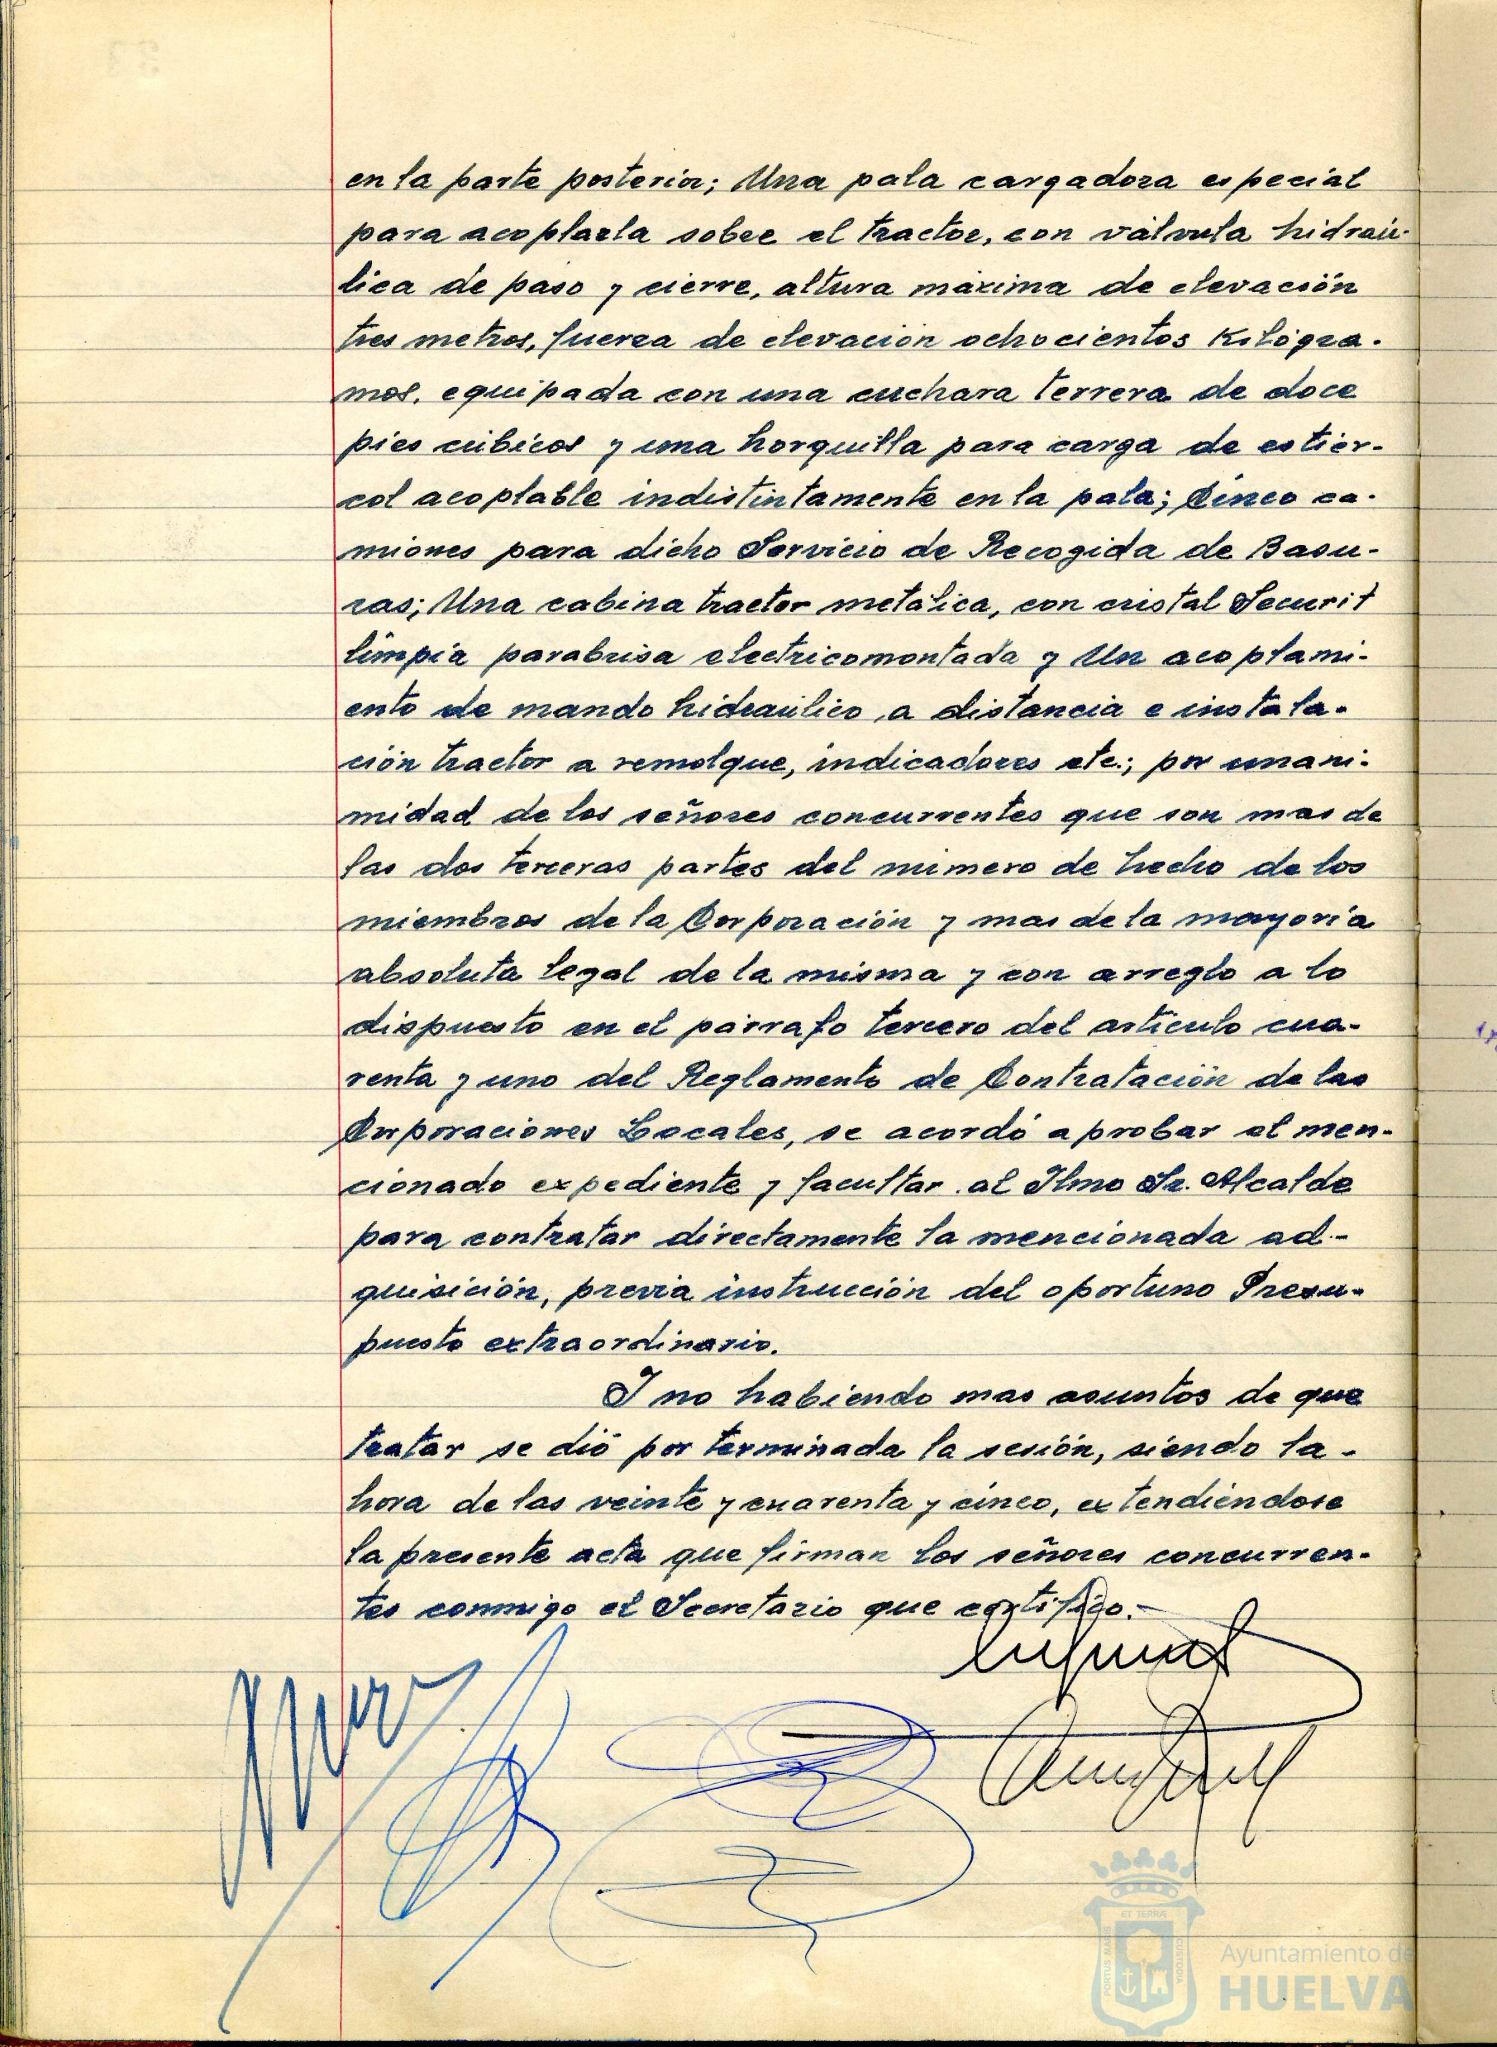 en la parte posterior; Una pala cargadora especial
para acoplarla sobre el tractor, con válvula hidráu-
lica de paso y cierre, altura máxima de elevación
tres metros, fuerza de elevación ochocientos Kilógra-
mos, equipada con una cuchara terrera de doce
pies cúbicos y una horquilla para carga de estier-
col acoplable indistintamente en la pala; Cinco ca-
miones para dicho Servicio de Recogida de Basu-
ras; Una cabina tractor metálica, con cristal Securit
limpia parabrisa electricomontada y Un acoplami-
ento de mando hidraúlico, a distancia e instala-
ción tractor a remolque, indicadores etc.; por unani-
midad de los señores concurrentes que son mas de
las dos terceras partes del número de hecho de los
miembros de la Corporación y mas de la mayoría
absoluta legal de la misma y con arreglo a lo
dispuesto en el párrafo tercero del artículo cua-
renta y uno del Reglamento de Contratación de las
Corporaciones Locales, se acordó aprobar el men-
cionado expediente y facultar al Ilmo Sr. Alcalde
para contratar directamente la mencionada ad-
quisición, previa instrucción del oportuno Presu-
puesto extraordinario.
Y no habiendo mas asuntos de que
tratar se dió por terminada la sesión, siendo la-
hora de las veinte y cuarenta y cinco, extendiéndose
la presente acta que firman los señores concurren-
tes conmigo el Secretario que certifico.-
ET TERRÆ
PORTUS MARIS
CUSTODIA
Ayuntamiento de
HUELVA